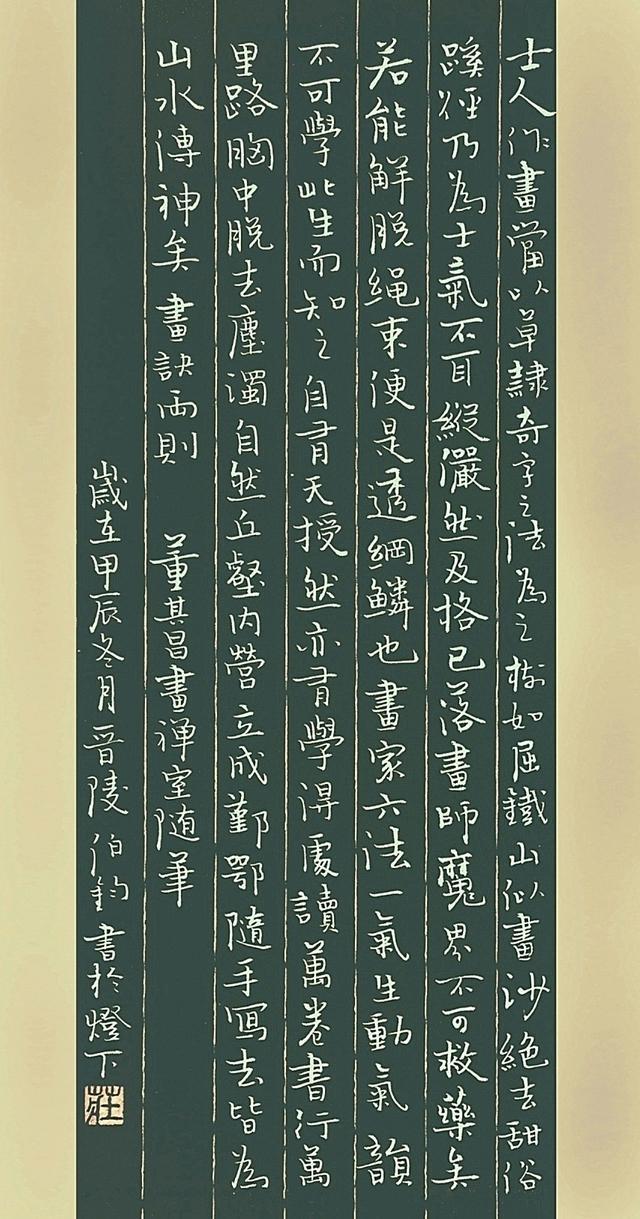 士人作畫當以草隷奇字之法為之樹如屈鐵山似畫沙絶去甜俗
蹊徑乃為士氣不目縱儼然及格已落畫師魔界不可救藥矣
若能解脱繩束便是透網鱗也畫家六法一氣生動氣韻
不可學此生而知之自有天授然亦有學得處讀萬卷書行萬
里路胸中脱去塵濁自然丘壑内營立成鄞鄂隨手寫去皆為
山水傳神矣 畫訣兩則 董其昌畫禅室随筆
歲在甲辰冬月晉陵伯鈞書於燈下
莊